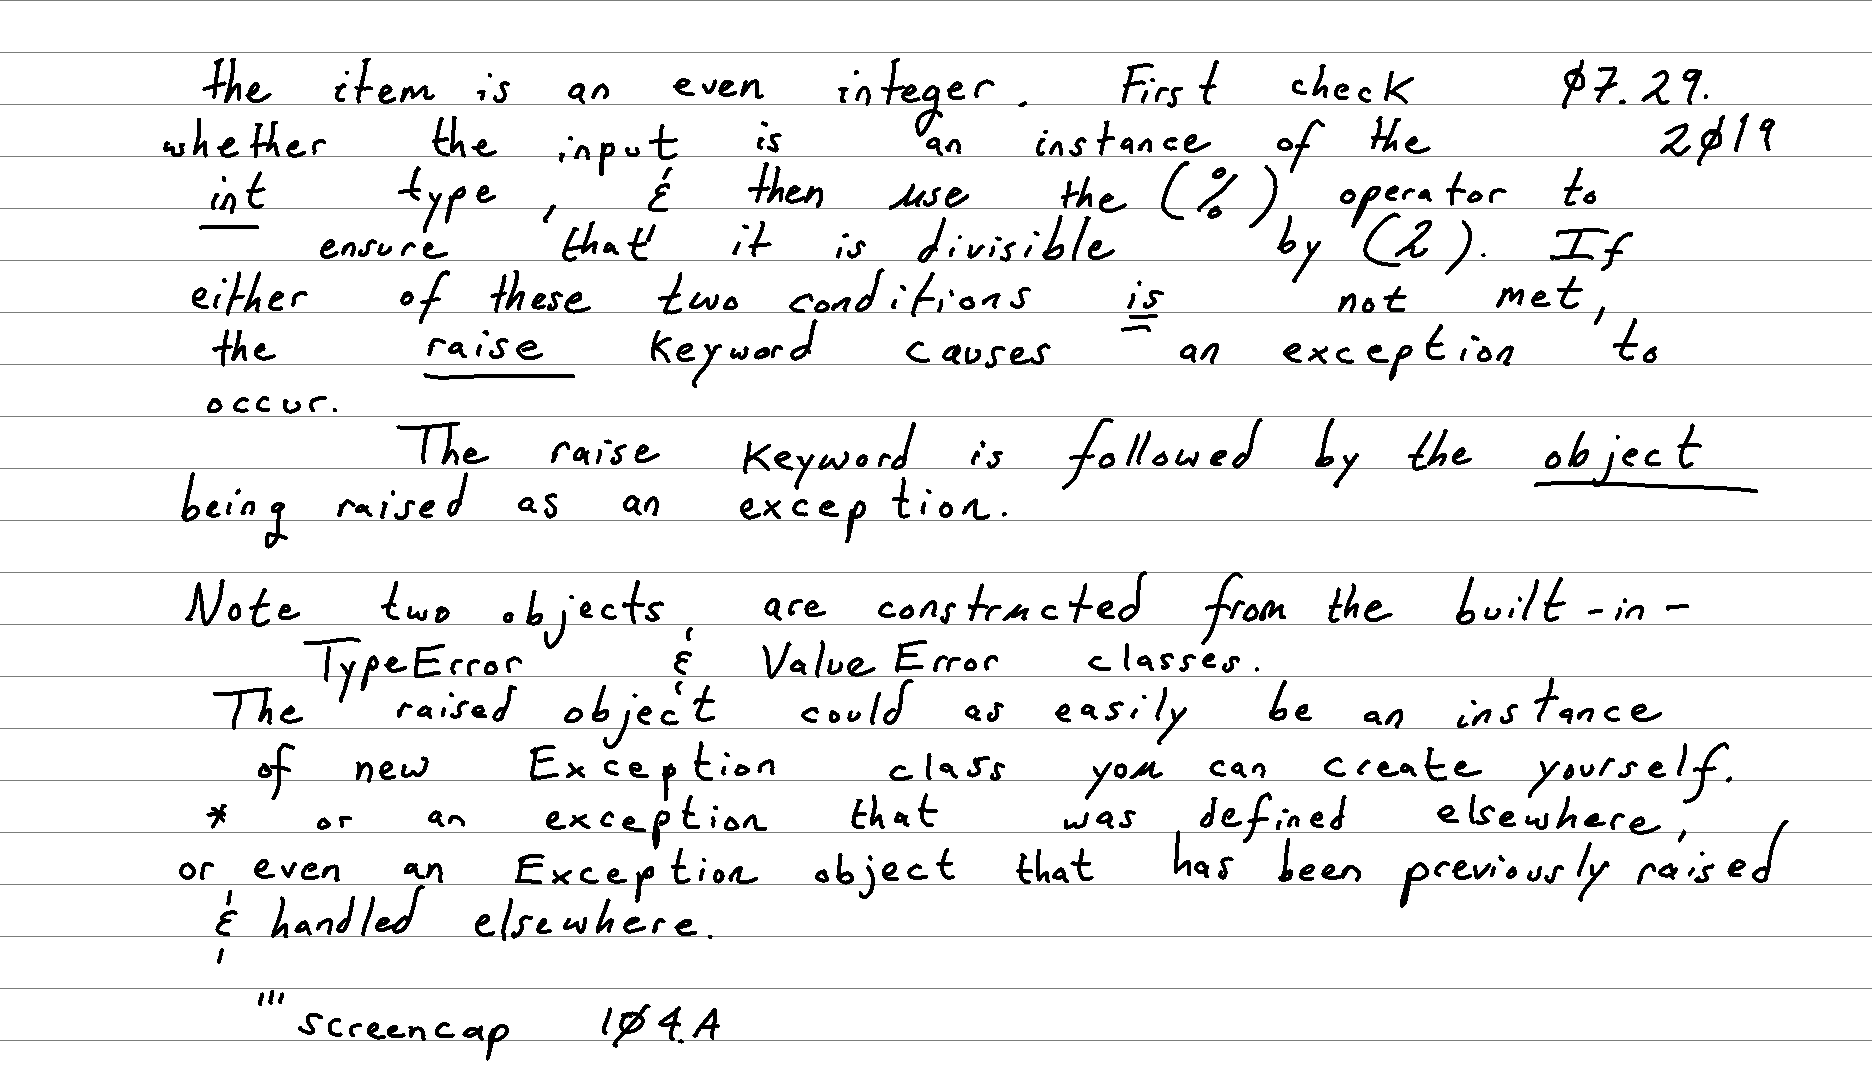 the item is an even integer. First check ø7.29.
whether the input is an instance of the 2ø19
int type, & then use the (%) operator to
ensure that it is divisible by (2). If
either of these two conditions is not met,
the raise keyword causes an exception to
occur.
The raise keyword is followed by the object
being raised as an exception.
Note two objects, are constructed from the built-in-
TypeError & Value Error classes.
The raised object could as easily be an instance
of new Exception class you can create yourself.
* or an exception that was defined elsewhere,
or even an Exception object that has been previously raised
& handled elsewhere.
''' screencap 1ø4.A